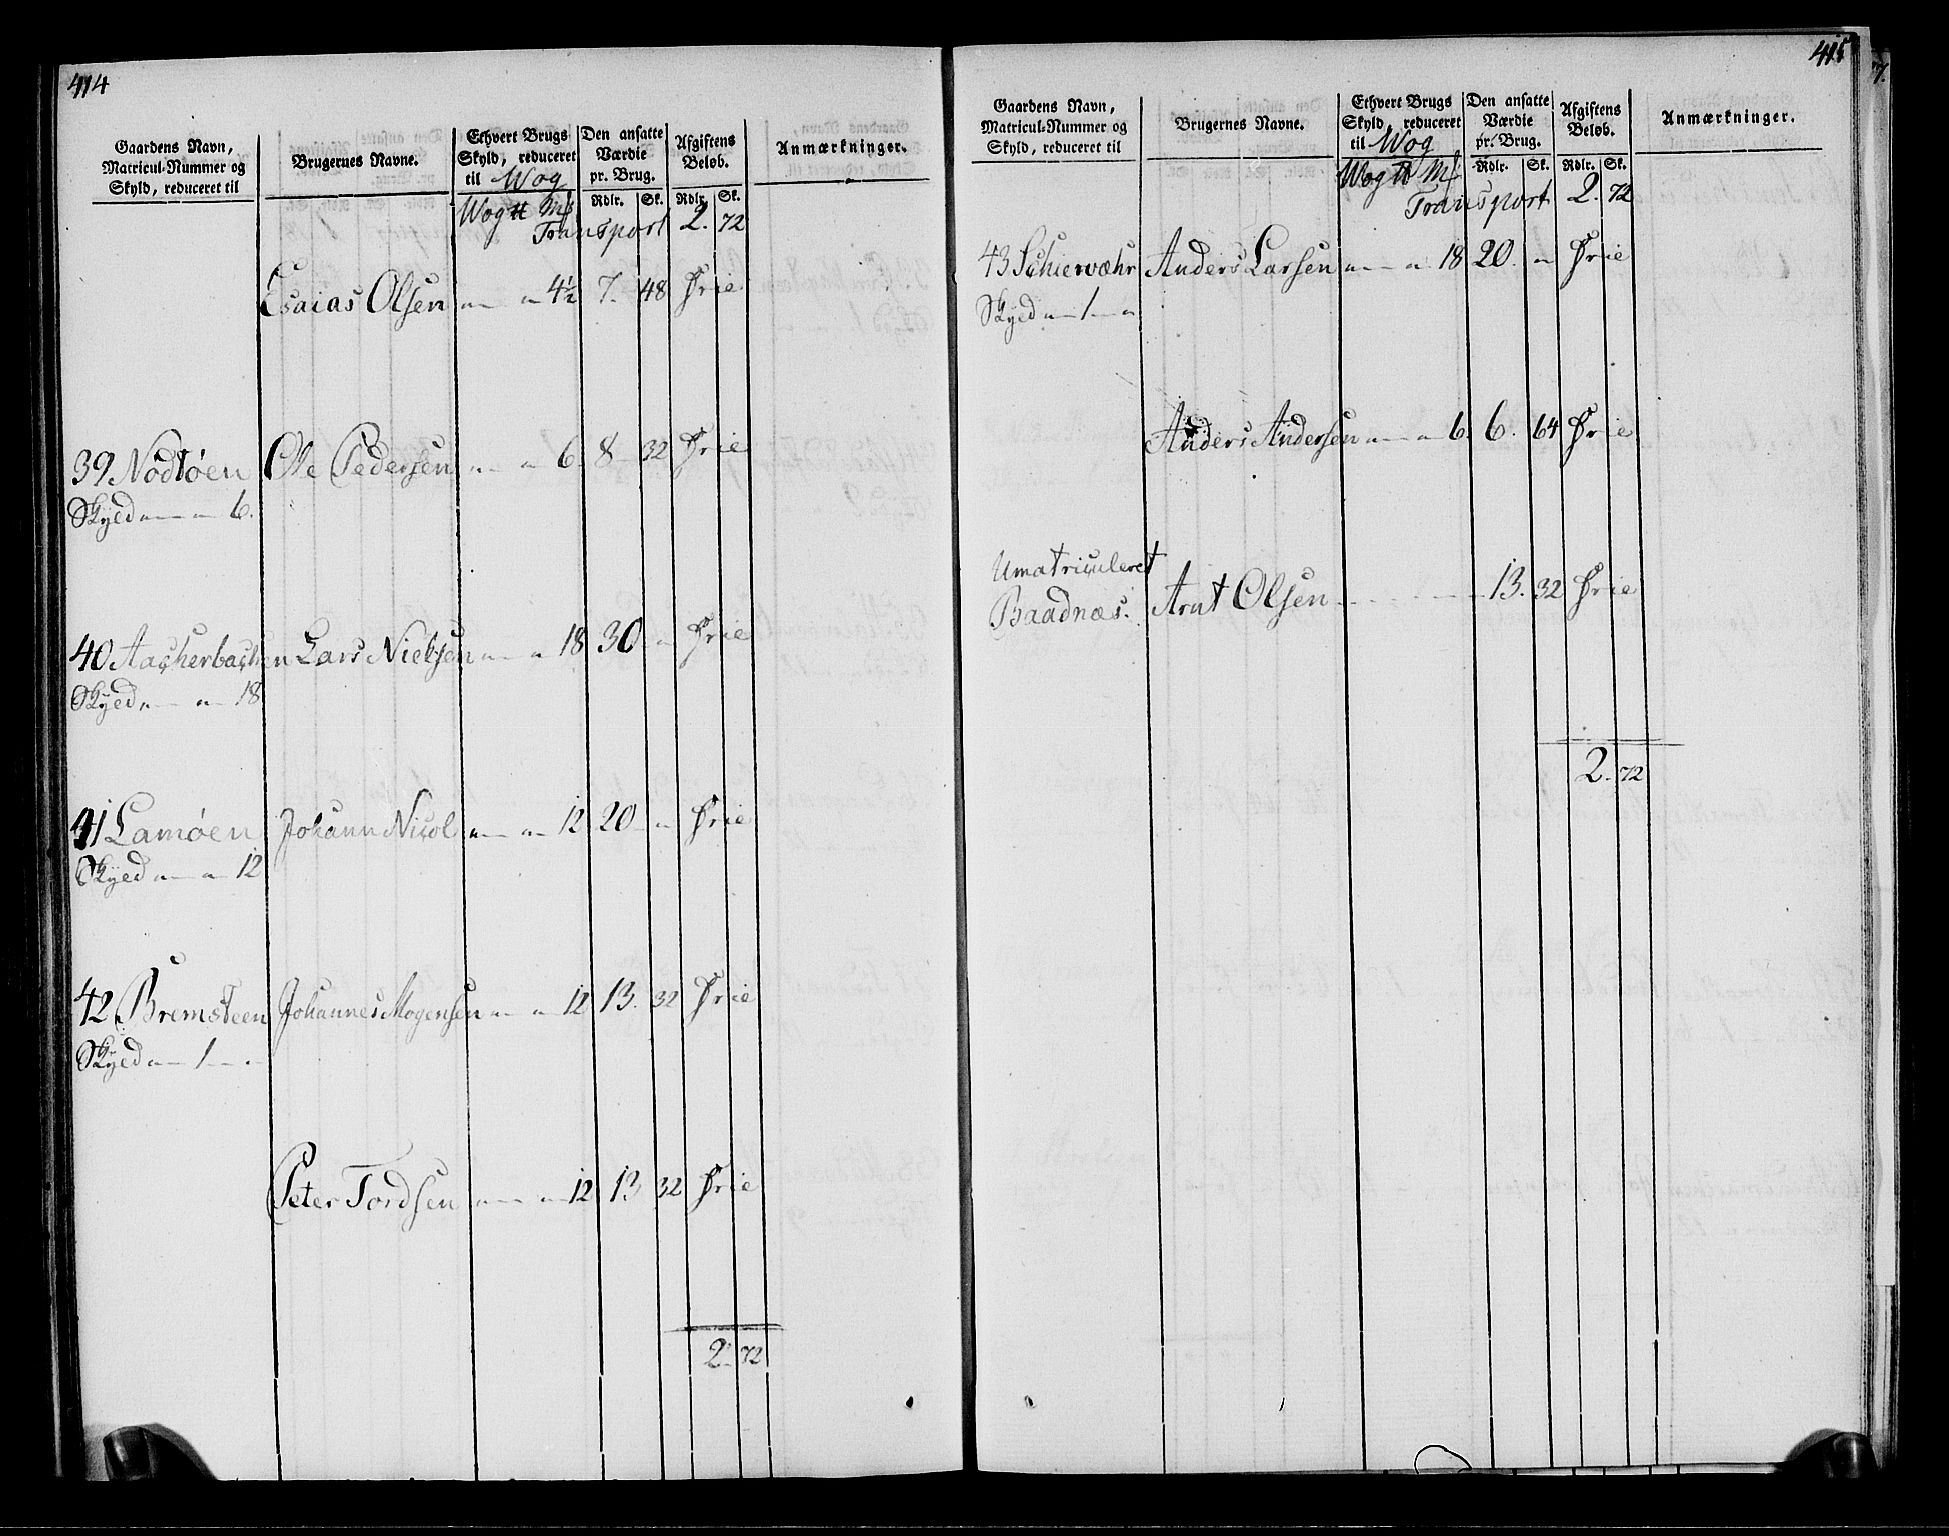 414
Gaardens Navn, Matricul-Nummer og Skyld, reduceret til
Brugernes Navne.
Ethvert Brugs Skyld, reduceret til Wog
Den ansatte Værdie pr. Brug.
Afgiftens Beløb.
Anmærkninger.
Wog ℔ Mk Rdlr. Sk. Rdlr. Sk.
Transport 2. 72
Esaias Olsen " — " 4½ 7. 48 Frie
39 Nodløen Ole Pedersen " — " 6. 8 32 Frie
Skyed " — " 6.
40 Aascherbachen Lars Nielsen " — " 18 30 " Frie
Skyed " — " 18
41 Lamøen Johann Nicol " — " 12 20 " Frie
Skyed " — " 12
42 Bremsteen Johannes Mogensen " — " 12 13. 32 Frie
Skyed " — 1 — "
Peter Tordsen " — " 12 13 32 Frie
2. 72
415
Gaardens Navn, Matricul-Nummer og Skyld, reduceret til
Brugernes Navne.
Ethvert Brugs Skyld, reduceret til Wog
Den ansatte Værdie pr. Brug.
Afgiftens Beløb.
Anmærkninger.
Wog ℔ Mk Rdlr. Sk. Rdlr. Sk.
Transport 2. 72
43 Schiervæhr Anders Larsen " — " 18 20. " Frie
Skyed " — 1 — "
Anders Andersen " — " 6. 6. 64 Frie
Umatriculeret
Baadnæs. Arnt Olsen 13. 32 Frie
2. 72